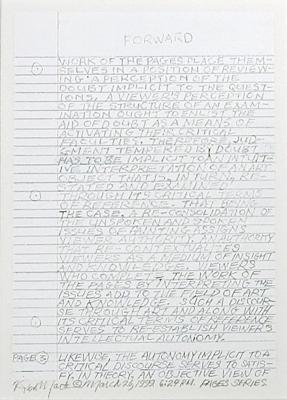 FORWARD
WORK OF THE PAGES PLACE THEM-
SELVES IN A POSITION OF REVIEW-
ING A PERCEPTION OF THE
DOUBT IMPLICIT TO THE QUEST-
IONS. A VIEWER'S PERCEPTION
OF THE STRUCTURE OF AN EXAM-
INATION OUGHT TO ENLIST THE
AID OF DOUBT AS A MEANS OF
ACTIVATING THEIR CRITICAL
FACULTIES. THEREFORE, JUD-
GEMENT TEMPERED BY DOUBT
HAS TO BE IMPLICIT TO AN INTUIT-
IVE INTERPRETATION OF AN
OBJECT THAT IS, IN TURN, RE-
STATED AND
THROUGH ITS CRITICAL TERMS
OF REFERENCE. THAT BEING
THE CASE, A RE-CONSOLIDATION OF
THE
ISSUES OF PAINTING ASSIGNS
VIEWER AUTHORITY. AN AUTHORITY
THAT RE-CONTEXTUALIZES
VIEWERS AS A MEDIUM OF INSIGHT
AND KNOWLEDGE. VIEWERS
WHO COMPLETE THE WORK OF
THE PAGES BY INTERPRETING THE
ISSUES ADD TO THE FIELD OF ART
AND KNOWLEDGE. SUCH A DISCOUR-
SE THROUGH ART AND ALONG WITH
ITS CRITICAL TERMS OF REFERENCE
SERVES TO RE-ESTABLISH VIEWER'S
INTELLECTUAL AUTONOMY.
PAGE 3
LIKEWISE, THE AUTONOMY IMPLICIT TO A
CRITICAL DISCOURSE SERVES TO SATIS-
FY, IN THEORY, AN OBJECTIVE VIEW OF
MARCH 26, 1998 6:29 P.M. PAGES SERIES